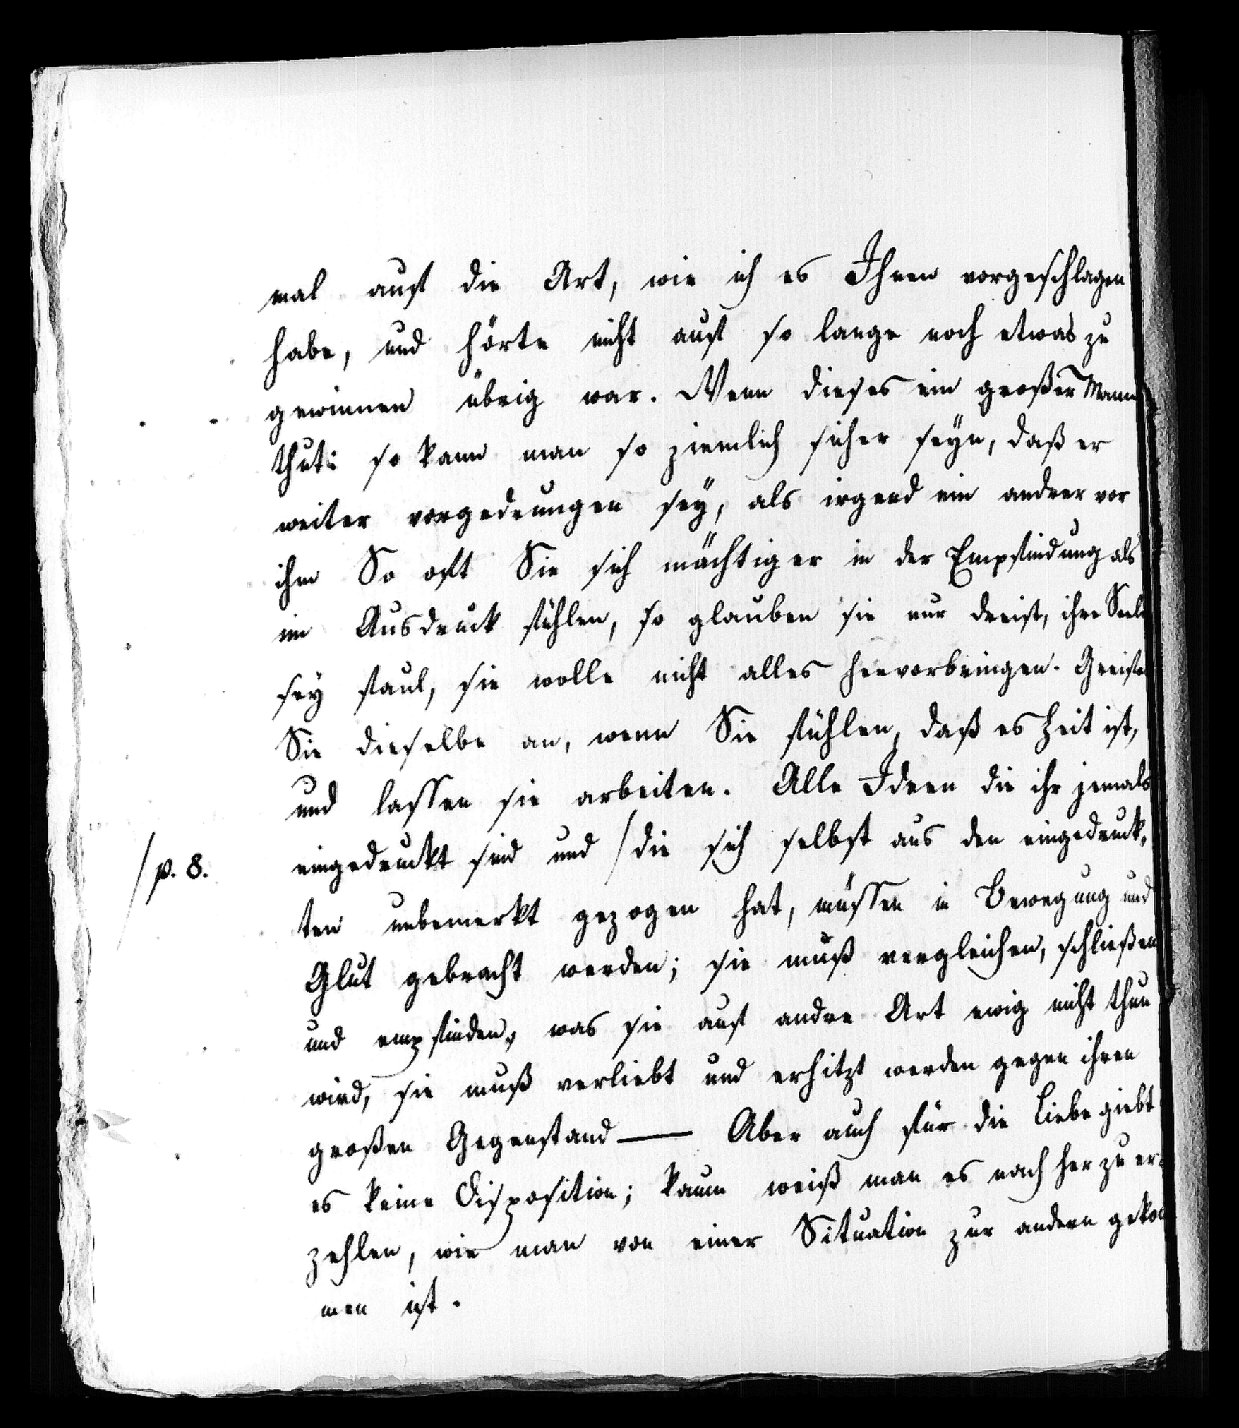 mal auf die Art, wie ich es Ihnen vorgeschlagen
habe, und hörte nicht auf so lange noch etwas zu
gewinnen übrig war. Wenn dieses ein großer Mann
thut: so kann man so ziemlich sicher seyn, daß er
weiter vorgedrungen sey, als irgend ein andrer vor
ihm So oft Sie sich mächtiger in der Empfindung als
im Ausdruck fühlen, so glauben sie nur dreist, ihre Seele
sey faul, sie wolle nicht alles hervorbringen. Greifen
Sie dieselbe an, wenn Sie fühlen, daß es Zeit ist,
und lassen sie arbeiten. Alle Ideen die ihr jemals
eingedruckt sind und / die sich selbst aus den eingedruck,
/ p. 8.
ten unbemerkt gezogen hat, müssen in Bewegung und
Glut gebracht werden; sie muß vergleichen, schließen
und empfinden, was sie auf andre Art ewig nicht thun
wird, sie muß verliebt und erhitzt werden gegen ihren
großen Gegenstand — Aber auch für die Liebe giebt
es keine Disposition; kaum weiß man es nach her zu er
zehlen, wie man von einer Situation zur andern gekom
men ist.